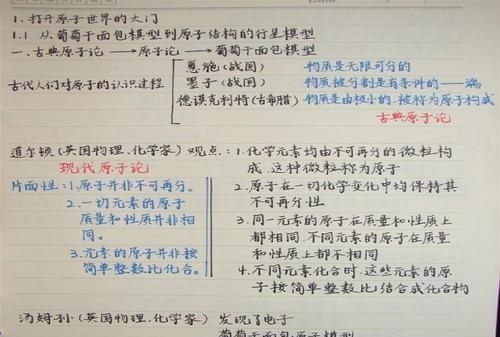 1.打开原子世界的大门
1.1 从葡萄干面包模型到原子结构的行星模型
一.古典原子论→原子论→葡萄干面包模型
古代人们对原子的认识过程
惠施(战国) 物质是无限可分的
墨子(战国) 物质被分割是有条件的——端
德谟克利特(古希腊) 物质是由极小的.被称为原子构成
古典原子论
道尔顿(英国物理.化学家)观点:1.化学元素均由不可再分的微粒构
成.这种微粒称为原子
现代原子论
片面性:1.原子并非不可再分。
2.一切元素的原子
质量和性质并非相
同。
3.元素的原子并非按
简单整数比化合。
2.原子在一切化学变化中均保持其
不可再分性
3.同一元素的原子在质量和性质上
都相同.不同元素的原子在质量
和性质上都不相同
4.不同元素化合时.这些元素的原
子按简单整数比结合成化合物
汤姆孙(英国物理.化学家) 发现了电子
葡萄干面包原子模型